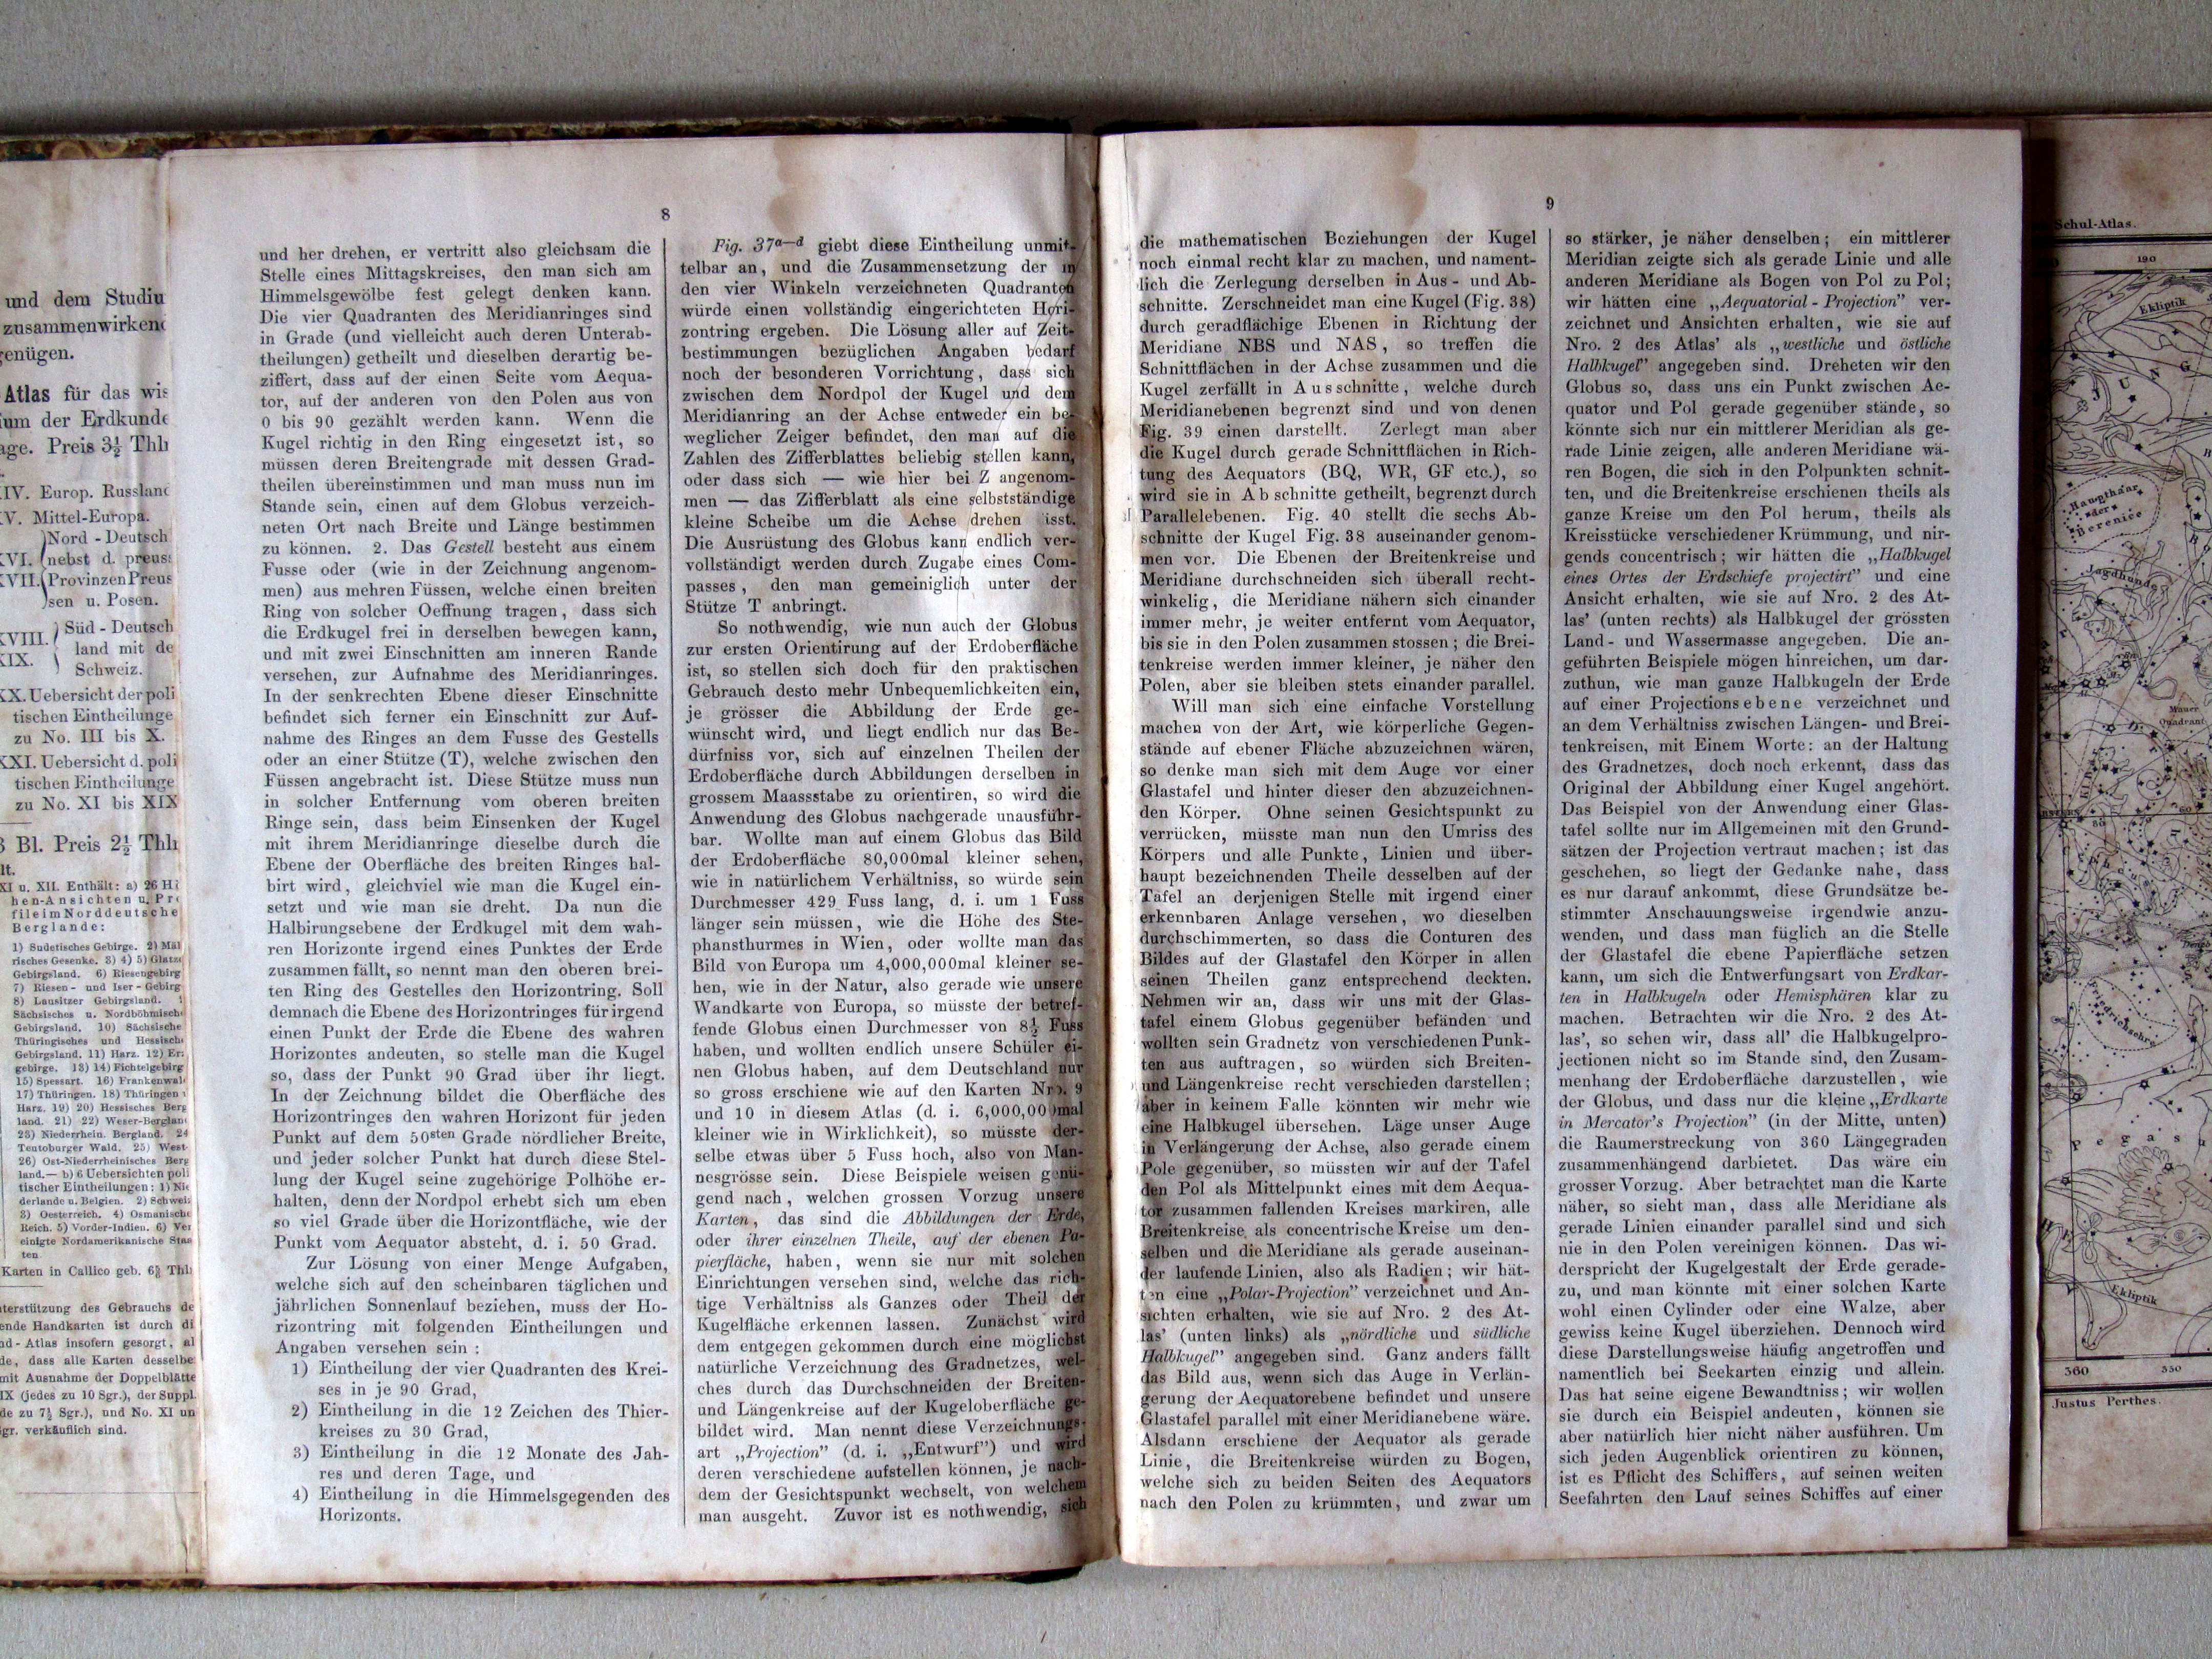 und dem Studiu
zusammenwirkend
genügen.
Atlas für das wis
ium der Erdkunde
age. Preis 3½ Thlr
XIV. Europ. Russland
XV. Mittel-Europa.
Nord - Deutsch
XVI. nebst d. preuss
XVII. Provinzen Preus
sen u. Posen.
XVIII. Süd - Deutsch
land mit de
XIX.
Schweiz.
XX. Uebersicht der poli
tischen Eintheilunge
zu No. III bis X.
XXI. Uebersicht d. poli
tischen Eintheilunge
zu No. XI bis XIX
Bl. Preis 2½ Thlr
lt.
XI u. XII. Enthält: a) 26 Hö
hen-Ansichten u. Pro
file im Norddeutsche
Berglande:
1) Sudetisches Gebirge. 2) Mäh
risches Gesenke. 3) 4) 5) Glatze
Gebirgsland. 6) Riesengebirg
7) Riesen- und Iser-Gebirg
8) Lausitzer Gebirgsland.
Sächsisches u. Nordböhmische
Gebirgsland. 10) Sächsische
Thüringisches und Hessische
Gebirgsland. 11) Harz. 12) Erz
gebirge. 13) 14) Fichtelgebirg
15) Spessart. 16) Frankenwald
17) Thüringen. 18) Thüringen
Harz. 19) 20) Hessisches Berg
land. 21) 22) Weser-Bergland
23) Niederrhein. Bergland. 24
Teutoburger Wald. 25) West-
26) Ost-Niederrheinisches Berg
land. — b) 6 Uebersichten poli
tischer Eintheilungen: 1) Nie
derlande u. Belgien. 2) Schweiz
3) Oesterreich. 4) Osmanische
Reich. 5) Vorder-Indien. 6) Ver
einigte Nordamerikanische Staa
ten.
Karten in Callico geb. 6⅔ Thlr
terstützung des Gebrauchs de
ende Handkarten ist durch di
nd-Atlas insofern gesorgt, al
de, dass alle Karten desselbe
mit Ausnahme der Doppelblätte
IX (jedes zu 10 Sgr.), der Suppl.
de zu 7½ Sgr.), und No. XI un
gr. verkäuflich sind.
8
und her drehen, er vertritt also gleichsam die
Stelle eines Mittagskreises, den man sich am
Himmelsgewölbe fest gelegt denken kann.
Die vier Quadranten des Meridianringes sind
in Grade (und vielleicht auch deren Unterab-
theilungen) getheilt und dieselben derartig be-
ziffert, dass auf der einen Seite vom Aequa-
tor, auf der anderen von den Polen aus von
0 bis 90 gezählt werden kann. Wenn die
Kugel richtig in den Ring eingesetzt ist, so
müssen deren Breitengrade mit dessen Grad-
theilen übereinstimmen und man muss nun im
Stande sein, einen auf dem Globus verzeich-
neten Ort nach Breite und Länge bestimmen
zu können. 2. Das Gestell besteht aus einem
Fusse oder (wie in der Zeichnung angenom-
men) aus mehren Füssen, welche einen breiten
Ring von solcher Oeffnung tragen, dass sich
die Erdkugel frei in derselben bewegen kann,
und mit zwei Einschnitten am inneren Rande
versehen, zur Aufnahme des Meridianringes.
In der senkrechten Ebene dieser Einschnitte
befindet sich ferner ein Einschnitt zur Auf-
nahme des Ringes an dem Fusse des Gestells
oder an einer Stütze (T), welche zwischen den
Füssen angebracht ist. Diese Stütze muss nun
in solcher Entfernung vom oberen breiten
Ringe sein, dass beim Einsenken der Kugel
mit ihrem Meridianringe dieselbe durch die
Ebene der Oberfläche des breiten Ringes hal-
birt wird, gleichviel wie man die Kugel ein-
setzt und wie man sie dreht. Da nun die
Halbirungsebene der Erdkugel mit dem wah-
ren Horizonte irgend eines Punktes der Erde
zusammen fällt, so nennt man den oberen brei-
ten Ring des Gestelles den Horizontring. Soll
demnach die Ebene des Horizontringes für irgend
einen Punkt der Erde die Ebene des wahren
Horizontes andeuten, so stelle man die Kugel
so, dass der Punkt 90 Grad über ihr liegt.
In der Zeichnung bildet die Oberfläche des
Horizontringes den wahren Horizont für jeden
Punkt auf dem 50sten Grade nördlicher Breite,
und jeder solcher Punkt hat durch diese Stel-
lung der Kugel seine zugehörige Polhöhe er-
halten, denn der Nordpol erhebt sich um eben
so viel Grade über die Horizontfläche, wie der
Punkt vom Aequator absteht, d. i. 50 Grad.
Zur Lösung von einer Menge Aufgaben,
welche sich auf den scheinbaren täglichen und
jährlichen Sonnenlauf beziehen, muss der Ho-
rizontring mit folgenden Eintheilungen und
Angaben versehen sein:
1) Eintheilung der vier Quadranten des Krei-
ses in je 90 Grad,
2) Eintheilung in die 12 Zeichen des Thier-
kreises zu 30 Grad,
3) Eintheilung in die 12 Monate des Jah-
res und deren Tage, und
4) Eintheilung in die Himmelsgegenden des
Horizonts.
Fig. 37a—d giebt diese Eintheilung unmit-
telbar an, und die Zusammensetzung der in
den vier Winkeln verzeichneten Quadranten
würde einen vollständig eingerichteten Hori-
zontring ergeben. Die Lösung aller auf Zeit-
bestimmungen bezüglichen Angaben bedarf
noch der besonderen Vorrichtung, dass sich
zwischen dem Nordpol der Kugel und dem
Meridianring an der Achse entweder ein be-
weglicher Zeiger befindet, den man auf die
Zahlen des Zifferblattes beliebig stellen kann,
oder dass sich — wie hier bei Z angenom-
men — das Zifferblatt als eine selbstständige
kleine Scheibe um die Achse drehen lässt.
Die Ausrüstung des Globus kann endlich ver-
vollständigt werden durch Zugabe eines Com-
passes, den man gemeiniglich unter der
Stütze T anbringt.
So nothwendig, wie nun auch der Globus
zur ersten Orientirung auf der Erdoberfläche
ist, so stellen sich doch für den praktischen
Gebrauch desto mehr Unbequemlichkeiten ein,
je grösser die Abbildung der Erde ge-
wünscht wird, und liegt endlich nur das Be-
dürfniss vor, sich auf einzelnen Theilen der
Erdoberfläche durch Abbildungen derselben in
grossem Maassstabe zu orientiren, so wird die
Anwendung des Globus nachgerade unausführ-
bar. Wollte man auf einem Globus das Bild
der Erdoberfläche 80,000mal kleiner sehen,
wie in natürlichem Verhältniss, so würde sein
Durchmesser 429 Fuss lang, d. i. um 1 Fuss
länger sein müssen, wie die Höhe des Ste-
phansthurmes in Wien, oder wollte man das
Bild von Europa um 4,000,000mal kleiner se-
hen, wie in der Natur, also gerade wie unsere
Wandkarte von Europa, so müsste der betref-
fende Globus einen Durchmesser von 8½ Fuss
haben, und wollten endlich unsere Schüler ei-
nen Globus haben, auf dem Deutschland nur
so gross erschiene wie auf den Karten Nro. 9
und 10 in diesem Atlas (d. i. 6,000,000mal
kleiner wie in Wirklichkeit), so müsste der-
selbe etwas über 5 Fuss hoch, also von Man-
nesgrösse sein. Diese Beispiele weisen genü-
gend nach, welchen grossen Vorzug unsere
Karten, das sind die Abbildungen der Erde,
oder ihrer einzelnen Theile, auf der ebenen Pa-
pierfläche, haben, wenn sie nur mit solchen
Einrichtungen versehen sind, welche das rich-
tige Verhältniss als Ganzes oder Theil der
Kugelfläche erkennen lassen. Zunächst wird
dem entgegen gekommen durch eine möglichst
natürliche Verzeichnung des Gradnetzes, wel-
ches durch das Durchschneiden der Breiten-
und Längenkreise auf der Kugeloberfläche ge-
bildet wird. Man nennt diese Verzeichnungs-
art „Projection” (d. i. „Entwurf”) und wird
deren verschiedene aufstellen können, je nach-
dem der Gesichtspunkt wechselt, von welchem
man ausgeht. Zuvor ist es nothwendig, sich
9
die mathematischen Beziehungen der Kugel
noch einmal recht klar zu machen, und nament-
lich die Zerlegung derselben in Aus- und Ab-
schnitte. Zerschneidet man eine Kugel (Fig. 38)
durch geradflächige Ebenen in Richtung der
Meridiane NBS und NAS, so treffen die
Schnittflächen in der Achse zusammen und die
Kugel zerfällt in Ausschnitte, welche durch
Meridianebenen begrenzt sind und von denen
Fig. 39 einen darstellt. Zerlegt man aber
die Kugel durch gerade Schnittflächen in Rich-
tung des Aequators (BQ, WR, GF etc.), so
wird sie in Abschnitte getheilt, begrenzt durch
Parallelebenen. Fig. 40 stellt die sechs Ab-
schnitte der Kugel Fig. 38 auseinander genom-
men vor. Die Ebenen der Breitenkreise und
Meridiane durchschneiden sich überall recht-
winkelig, die Meridiane nähern sich einander
immer mehr, je weiter entfernt vom Aequator,
bis sie in den Polen zusammen stossen; die Brei-
tenkreise werden immer kleiner, je näher den
Polen, aber sie bleiben stets einander parallel.
Will man sich eine einfache Vorstellung
machen von der Art, wie körperliche Gegen-
stände auf ebener Fläche abzuzeichnen wären,
so denke man sich mit dem Auge vor einer
Glastafel und hinter dieser den abzuzeichnen-
den Körper. Ohne seinen Gesichtspunkt zu
verrücken, müsste man nun den Umriss des
Körpers und alle Punkte, Linien und über-
haupt bezeichnenden Theile desselben auf der
Tafel an derjenigen Stelle mit irgend einer
erkennbaren Anlage versehen, wo dieselben
durchschimmerten, so dass die Conturen des
Bildes auf der Glastafel den Körper in allen
seinen Theilen ganz entsprechend deckten.
Nehmen wir an, dass wir uns mit der Glas-
tafel einem Globus gegenüber befänden und
wollten sein Gradnetz von verschiedenen Punk-
ten aus auftragen, so würden sich Breiten-
und Längenkreise recht verschieden darstellen;
aber in keinem Falle könnten wir mehr wie
eine Halbkugel übersehen. Läge unser Auge
in Verlängerung der Achse, also gerade einem
Pole gegenüber, so müssten wir auf der Tafel
den Pol als Mittelpunkt eines mit dem Aequa-
tor zusammen fallenden Kreises markiren, alle
Breitenkreise als concentrische Kreise um den-
selben und die Meridiane als gerade auseinan-
der laufende Linien, also als Radien; wir hät-
ten eine „Polar-Projection” verzeichnet und An-
sichten erhalten, wie sie auf Nro. 2 des At-
las' (unten links) als „nördliche und südliche
Halbkugel” angegeben sind. Ganz anders fällt
das Bild aus, wenn sich das Auge in Verlän-
gerung der Aequatorebene befindet und unsere
Glastafel parallel mit einer Meridianebene wäre.
Alsdann erschiene der Aequator als gerade
Linie, die Breitenkreise würden zu Bogen,
welche sich zu beiden Seiten des Aequators
nach den Polen zu krümmten, und zwar um
so stärker, je näher denselben; ein mittlerer
Meridian zeigte sich als gerade Linie und alle
anderen Meridiane als Bogen von Pol zu Pol;
wir hätten eine „Aequatorial-Projection” ver-
zeichnet und Ansichten erhalten, wie sie auf
Nro. 2 des Atlas' als „westliche und östliche
Halbkugel” angegeben sind. Dreheten wir den
Globus so, dass uns ein Punkt zwischen Ae-
quator und Pol gerade gegenüber stände, so
könnte sich nur ein mittlerer Meridian als ge-
rade Linie zeigen, alle anderen Meridiane wä-
ren Bogen, die sich in den Polpunkten schnit-
ten, und die Breitenkreise erschienen theils als
ganze Kreise um den Pol herum, theils als
Kreisstücke verschiedener Krümmung, und nir-
gends concentrisch; wir hätten die „Halbkugel
eines Ortes der Erdschiefe projectirt” und eine
Ansicht erhalten, wie sie auf Nro. 2 des At-
las' (unten rechts) als Halbkugel der grössten
Land- und Wassermasse angegeben. Die an-
geführten Beispiele mögen hinreichen, um dar-
zuthun, wie man ganze Halbkugeln der Erde
auf einer Projectionsebene verzeichnet und
an dem Verhältniss zwischen Längen- und Brei-
tenkreisen, mit Einem Worte: an der Haltung
des Gradnetzes, doch noch erkennt, dass das
Original der Abbildung einer Kugel angehört.
Das Beispiel von der Anwendung einer Glas-
tafel sollte nur im Allgemeinen mit den Grund-
sätzen der Projection vertraut machen; ist das
geschehen, so liegt der Gedanke nahe, dass
es nur darauf ankommt, diese Grundsätze be-
stimmter Anschauungsweise irgendwie anzu-
wenden, und dass man füglich an die Stelle
der Glastafel die ebene Papierfläche setzen
kann, um sich die Entwerfungsart von Erdkar-
ten in Halbkugeln oder Hemisphären klar zu
machen. Betrachten wir die Nro. 2 des At-
las', so sehen wir, dass all' die Halbkugelpro-
jectionen nicht so im Stande sind, den Zusam-
menhang der Erdoberfläche darzustellen, wie
der Globus, und dass nur die kleine „Erdkarte
in Mercator's Projection” (in der Mitte, unten)
die Raumerstreckung von 360 Längegraden
zusammenhängend darbietet. Das wäre ein
grosser Vorzug. Aber betrachtet man die Karte
näher, so sieht man, dass alle Meridiane als
gerade Linien einander parallel sind und sich
nie in den Polen vereinigen können. Das wi-
derspricht der Kugelgestalt der Erde gerade-
zu, und man könnte mit einer solchen Karte
wohl einen Cylinder oder eine Walze, aber
gewiss keine Kugel überziehen. Dennoch wird
diese Darstellungsweise häufig angetroffen und
namentlich bei Seekarten einzig und allein.
Das hat seine eigene Bewandtniss; wir wollen
sie durch ein Beispiel andeuten, können sie
aber natürlich hier nicht näher ausführen. Um
sich jeden Augenblick orientiren zu können,
ist es Pflicht des Schiffers, auf seinen weiten
Seefahrten den Lauf seines Schiffes auf einer
Schul-Atlas.
190
Ekliptik
JUNG
Haupthaar
der
Berenice
Jagdhunde
Mauer
Quadrant
Friedrichsehre
Pegasu
Ekliptik
360
350
Justus Perthes.